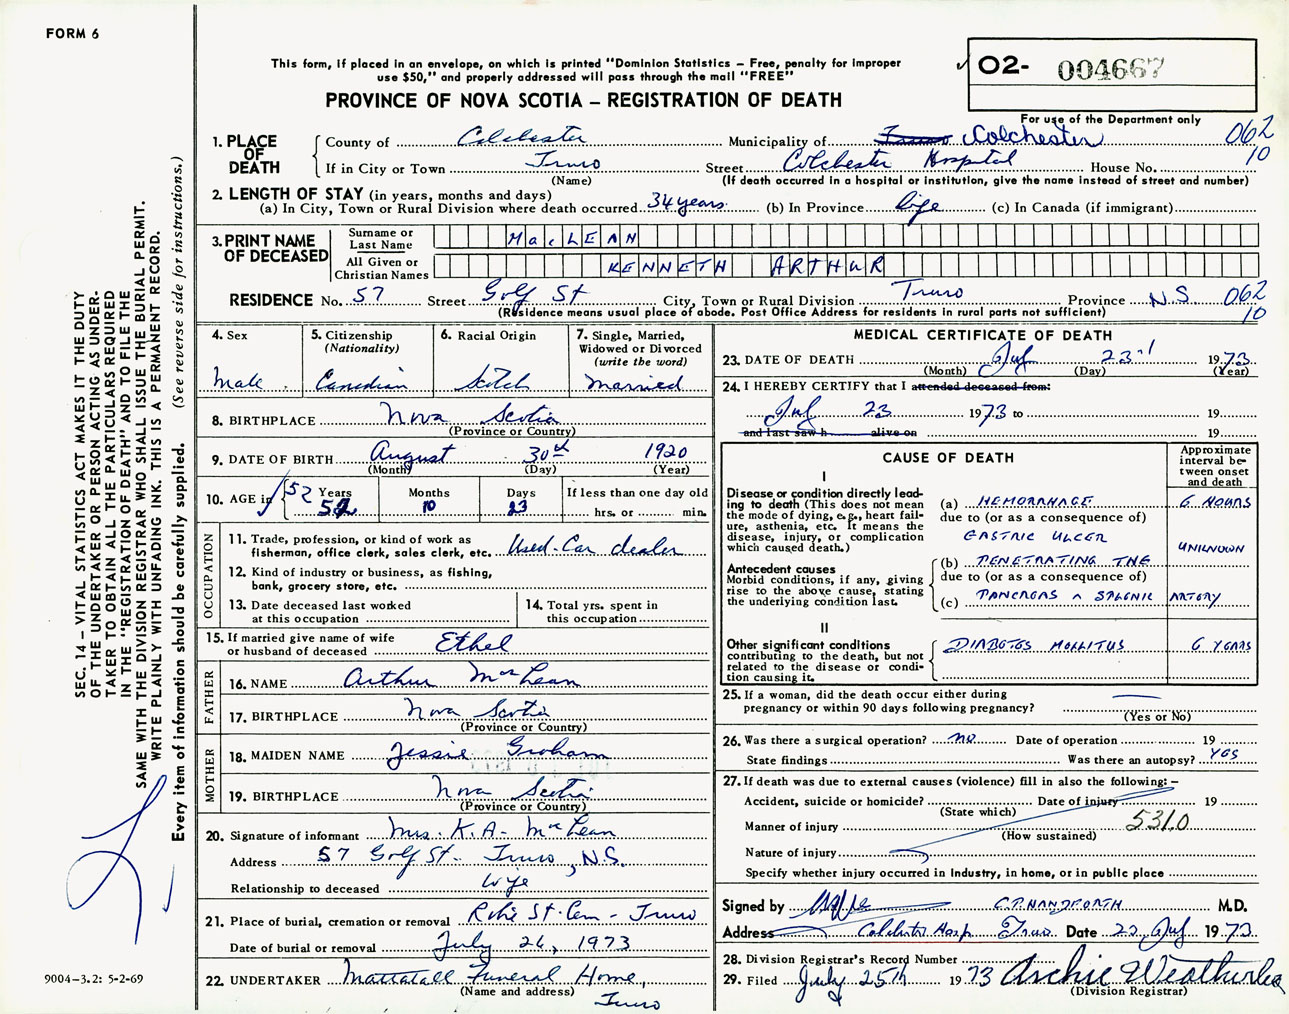 FORM 6
This form, if placed in an envelope, on which is printed "Dominion Statistics – Free, penalty for improper
use $50," and properly addressed will pass through the mail "FREE"
PROVINCE OF NOVA SCOTIA – REGISTRATION OF DEATH
O2- 004667
For use of the Department only
062
10
1. PLACE OF DEATH
County of Colchester Municipality of Colchester
If in City or Town Truro Street Colchester Hospital House No.
(Name) (If death occurred in a hospital or institution, give the name instead of street and number)
2. LENGTH OF STAY (in years, months and days)
(a) In City, Town or Rural Division where death occurred 34 years (b) In Province life (c) In Canada (if immigrant)
3. PRINT NAME OF DECEASED
Surname or Last Name MacLEAN
All Given or Christian Names KENNETH ARTHUR
RESIDENCE No. 57 Street Golf St City, Town or Rural Division Truro Province N.S. 062
10
(Residence means usual place of abode. Post Office Address for residents in rural parts not sufficient)
4. Sex
Male
5. Citizenship
(Nationality)
Canadian
6. Racial Origin
Scotch
7. Single, Married,
Widowed or Divorced
(write the word)
Married
8. BIRTHPLACE Nova Scotia
(Province or Country)
9. DATE OF BIRTH August 30th 1920
(Month) (Day) (Year)
10. AGE in 52 Years 52 Months 10 Days 23 If less than one day old
hrs. or min.
OCCUPATION
11. Trade, profession, or kind of work as
fisherman, office clerk, sales clerk, etc. Used-Car dealer
12. Kind of industry or business, as fishing,
bank, grocery store, etc.
13. Date deceased last worked
at this occupation
14. Total yrs. spent in
this occupation
15. If married give name of wife
or husband of deceased Ethel
FATHER
16. NAME Arthur MacLean
17. BIRTHPLACE Nova Scotia
(Province or Country)
MOTHER
18. MAIDEN NAME Jessie Graham
19. BIRTHPLACE Nova Scotia
(Province or Country)
20. Signature of informant Mrs. K. A. MacLean
Address 57 Golf St. Truro, N.S.
Relationship to deceased wife
21. Place of burial, cremation or removal Robie St. Cem – Truro
Date of burial or removal July 26, 1973
22. UNDERTAKER Mattatall Funeral Home,
(Name and address) Truro
MEDICAL CERTIFICATE OF DEATH
23. DATE OF DEATH July 23rd 1973
(Month) (Day) (Year)
24. I HEREBY CERTIFY that I attended deceased from:
July 23 1973 to 19
and last saw h alive on 19
CAUSE OF DEATH
Approximate
interval be-
tween onset
and death
I
Disease or condition directly lead-
ing to death (This does not mean
the mode of dying, e.g., heart fail-
ure, asthenia, etc. It means the
disease, injury, or complication
which caused death.)
(a) HEMORRHAGE 6 HOURS
due to (or as a consequence of)
GASTRIC ULCER
UNKNOWN
Antecedent causes
Morbid conditions, if any, giving
rise to the above cause, stating
the underlying condition last.
(b) PENETRATING THE
due to (or as a consequence of)
(c) PANCREAS & SPLENIC ARTERY
II
Other significant conditions
contributing to the death, but not
related to the disease or condi-
tion causing it.
DIABETES MELLITUS 6 YEARS
25. If a woman, did the death occur either during
pregnancy or within 90 days following pregnancy?
(Yes or No)
26. Was there a surgical operation? no. Date of operation 19
State findings Was there an autopsy? YES
27. If death was due to external causes (violence) fill in also the following: –
Accident, suicide or homicide? Date of injury 19
(State which)
Manner of injury 531.0
(How sustained)
Nature of injury
Specify whether injury occurred in industry, in home, or in public place
Signed by C.P. HANDFORTH M.D.
Address Colchester Hosp Truro Date 23 July 1973
28. Division Registrar's Record Number
29. Filed July 25th 1973 Archie Weatherbee
(Division Registrar)
SEC. 14 – VITAL STATISTICS ACT MAKES IT THE DUTY
OF THE UNDERTAKER OR PERSON ACTING AS UNDER-
TAKER TO OBTAIN ALL THE PARTICULARS REQUIRED
IN THE "REGISTRATION OF DEATH" AND TO FILE THE
SAME WITH THE DIVISION REGISTRAR WHO SHALL ISSUE THE BURIAL PERMIT.
WRITE PLAINLY WITH UNFADING INK. THIS IS A PERMANENT RECORD.
Every item of information should be carefully supplied. (See reverse side for instructions.)
9004–3.2: 5-2-69